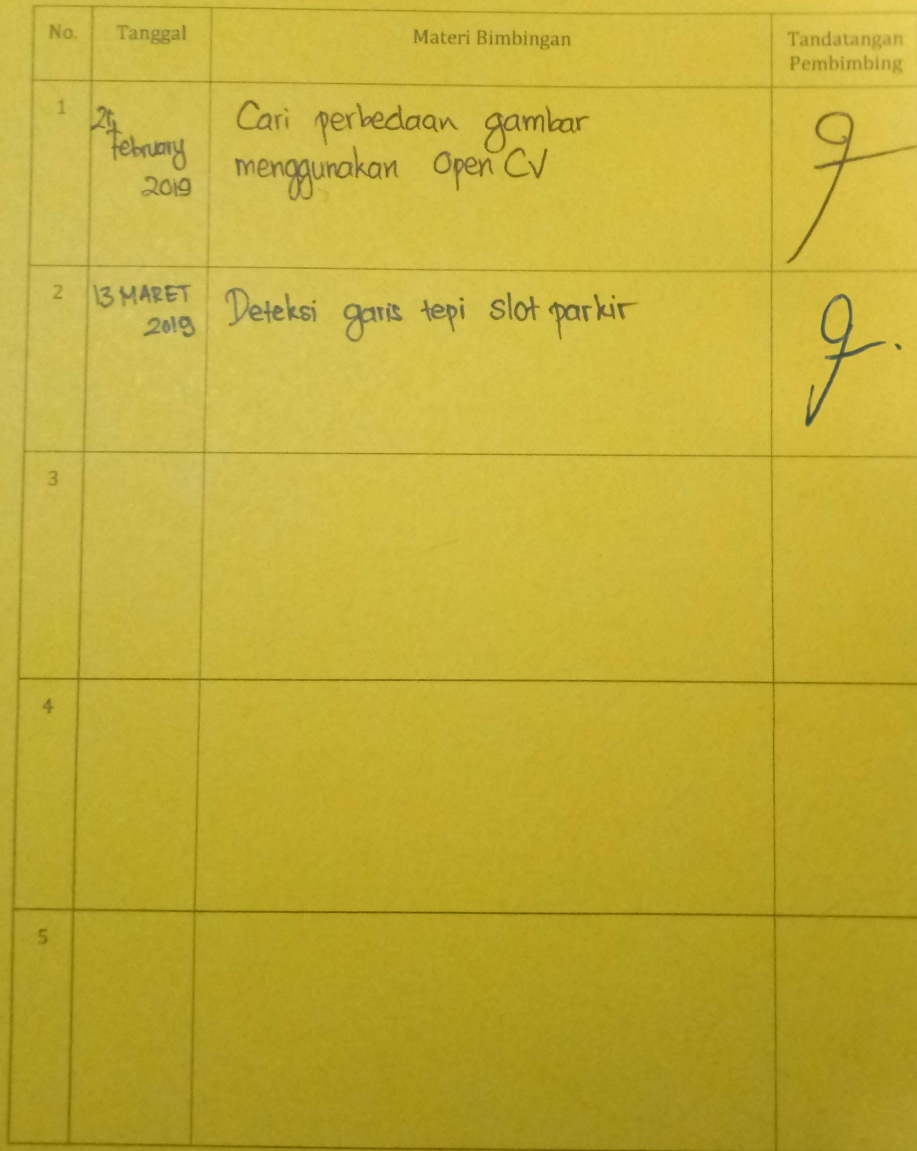 No. Tanggal Materi Bimbingan Tandatangan
Pembimbing
1
February
2019
Cari perbedaan gambar
menggunakan Open CV
2
13 MARET
2019
Deteksi garis tepi slot parkir
3
4
5